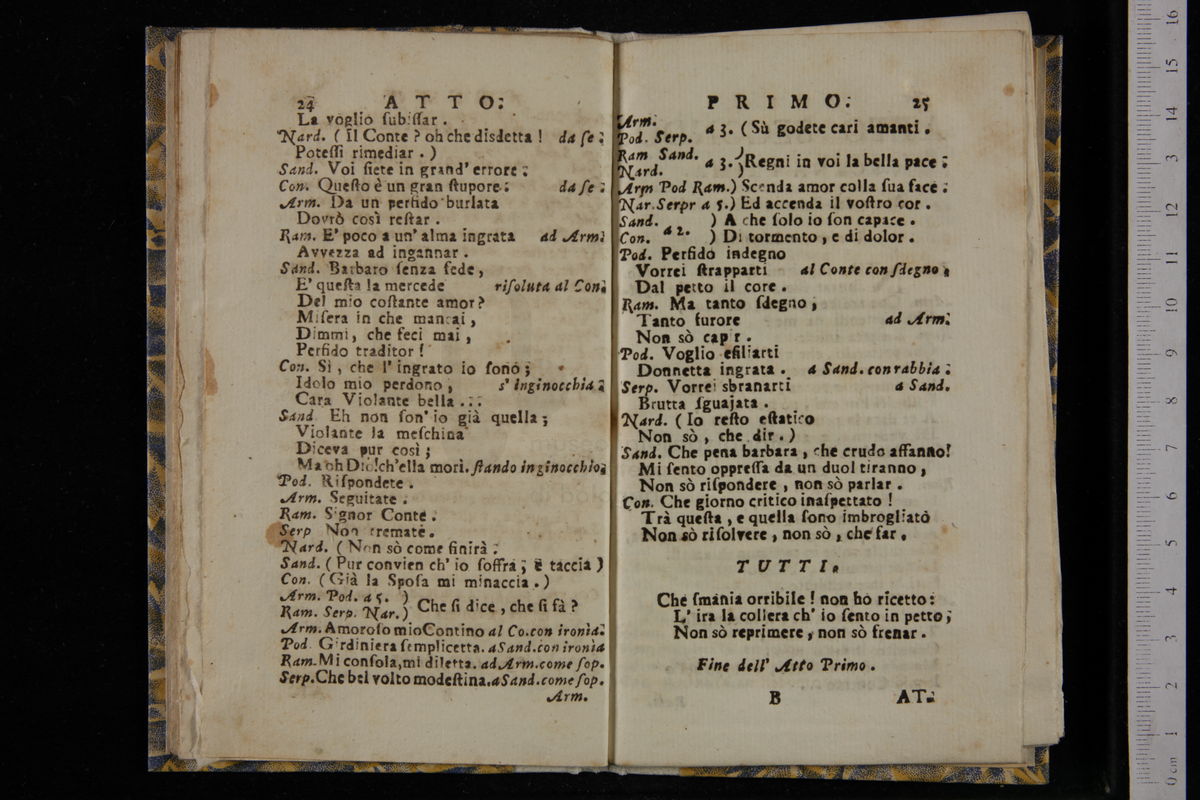 24 ATTO.
La voglio ſubiſſar.
Nard. (Il Conte? oh che disdetta! da ſe.
Poteſſi rimediar.)
Sand. Voi ſiete in grand' errore.
Con. Queſto è un gran ſtupore. da ſe.
Arm. Da un perfido burlata
Dovrò così reſtar.
Ram. E' poco a un' alma ingrata ad Arm.
Avvezza ad ingannar.
Sand. Barbaro ſenza fede,
E' queſta la mercede riſoluta al Con.
Del mio coſtante amor?
Miſera in che mancai,
Dimmi, che feci mai,
Perfido traditor!
Con. Sì, che l' ingrato io ſono;
Idolo mio perdono, s' inginocchia.
Cara Violante bella...
Sand. Eh non ſon' io già quella;
Violante la meſchina
Diceva pur così;
Ma oh Dio! ch'ella morì. ſtando inginocchio.
Pod. Riſpondete.
Arm. Seguitate.
Ram. Signor Conte.
Serp Non tremate.
Nard. (Non sò come finirà.
Sand. (Pur convien ch' io ſoffra, e taccia)
Con. (Già la Spoſa mi minaccia.)
Arm. Pod. a 5. )
Ram. Serp. Nar.) Che ſi dice, che ſi fà?
Arm. Amoroſo mio Contino al Co. con ironìa.
Pod. Girdiniera ſemplicetta. a Sand. con ironia
Ram. Mi conſola, mi diletta. ad Arm. come ſop.
Serp. Che bel volto modeſtina. a Sand. come ſop.
Arm.
PRIMO. 25
Arm.
Pod. Serp. a 3. (Sù godete cari amanti.
Ram Sand.
Nard. a 3. )Regni in voi la bella pace.
Arm Pod Ram.) Scenda amor colla ſua face.
Nar. Serpr a 5.) Ed accenda il voſtro cor.
Sand. ) A che ſolo io ſon capace.
Con. a 2. ) Di tormento, e di dolor.
Pod. Perfido indegno
Vorrei ſtrapparti al Conte con ſdegno.
Dal petto il core.
Ram. Ma tanto ſdegno,
Tanto furore ad Arm.
Non sò capir.
Pod. Voglio eſiliarti
Donnetta ingrata. a Sand. con rabbia.
Serp. Vorrei sbranarti a Sand.
Brutta ſguajata.
Nard. (Io reſto eſtatico
Non sò, che dir.)
Sand. Che pena barbara, che crudo affanno!
Mi ſento oppreſſa da un duol tiranno,
Non sò riſpondere, non sò parlar.
Con. Che giorno critico inaſpettato!
Trà queſta, e quella ſono imbrogliatò
Non sò riſolvere, non sò, che far.
TUTTI.
Che ſmània orribile! non ho ricetto:
L' ira la collera ch' io ſento in petto;
Non sò reprimere, non sò frenar.
Fine dell' Atto Primo.
B AT-
0 cm 1 2 3 4 5 6 7 8 9 10 11 12 13 14 15 16